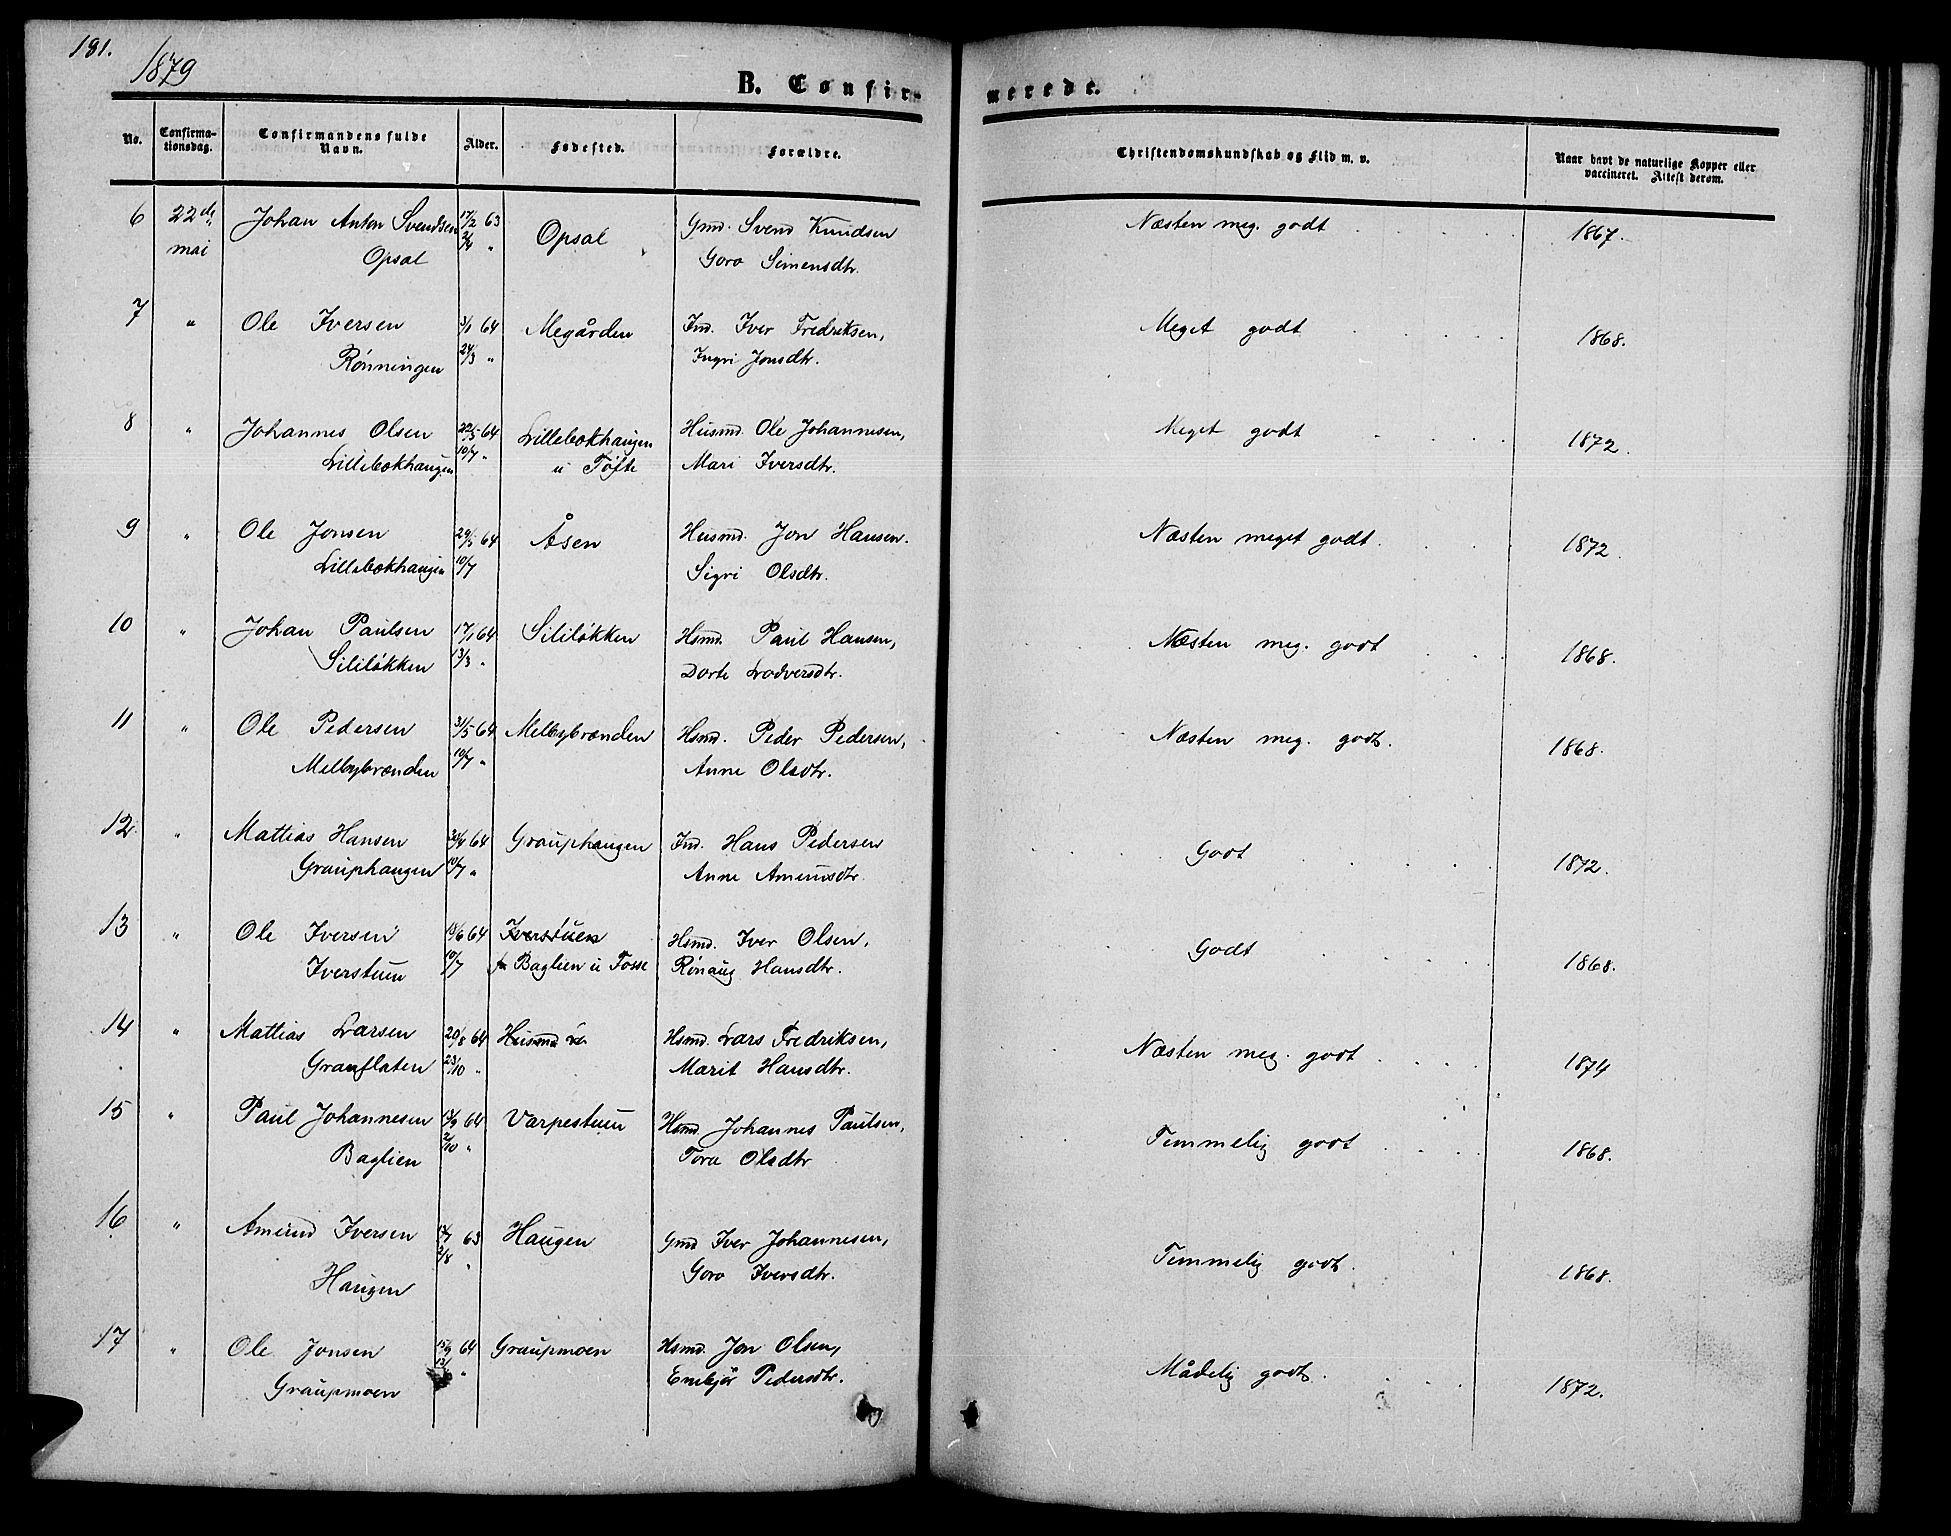 181.
1879
B. Confirmerede.
No. Confirmationsdag. Confirmandens fulde Navn. Alder. Fødested. Forældre. Christendomskundskab og Flid m. v. Naar havt de naturlige Kopper eller vaccineret. Attest derom.
6 22de Johan Anton Svendsen 17/2 63 Opsal Gmd. Svend Knudsen Næsten meg. godt 1867.
mai Opsal 2/4 " Goro Simensdtr.
7 " Ole Iversen 3/1 64 Megården Ind. Iver Fredriksen, Meget godt 1868.
Rønningen 24/3 " Ingri Jonsdtr.
8 " Johannes Olsen 22/5 64 Lillebækhaugen Husmd. Ole Johannesen, Meget godt 1872.
Lillebækhaugen 10/7 " u Tofte Mari Iversdtr.
9 " Ole Jonsen 29/5 64 Åsen Husmd. Jon Hansen. Næsten meget godt. 1872
Lillebækhaugen 10/7 Sigri Olsdtr.
10 " Johan Paulsen 17/1 64 Sililøkken Hsmd. Paul Hansen, Næsten meg. godt 1868.
Sililøkken 13/3 " Dorte Lodversdtr.
11 " Ole Pedersen 31/5 64 Melbybrænden Hsmd. Peder Pedersen, Næsten meg. godt. 1868.
Melbybrænden 10/7 " Anne Olsdtr.
12 " Mattias Hansen 30/4 64 Grauphaugen Ind. Hans Pedersen Godt 1872.
Grauphaugen 10/7 " Anne Amundsdtr.
13 " Ole Iversen 18/6 64 Iverstuen Hsmd. Iver Olsen, Godt 1868.
Iverstuen 10/7 Baglien u Fosse Rønaug Hansdtr.
14 " Mattias Larsen 20/8 64 Husmd Hsmd. Lars Fredriksen, Næsten meg. godt 1874
Granflaten 23/10 " Marit Hansdtr.
15 " Paul Johannesen 13/9 64 Varpestuen Hsmd. Johannes Paulsen, Temmelig godt 1868.
Baglien 2/10 " Tora Olsdtr
16 " Amund Iversen 63 Haugen Gmd Iver Johannesen, Temmelig godt. 1868.
Haugen 2/8 " Goro Iversdtr.
17 " Ole Jonsen 15/9 64 Graupmoen Hsmd. Jon Olsen, Mådelig godt. 1872.
Graupmoen " Enebjør Pedersdtr.